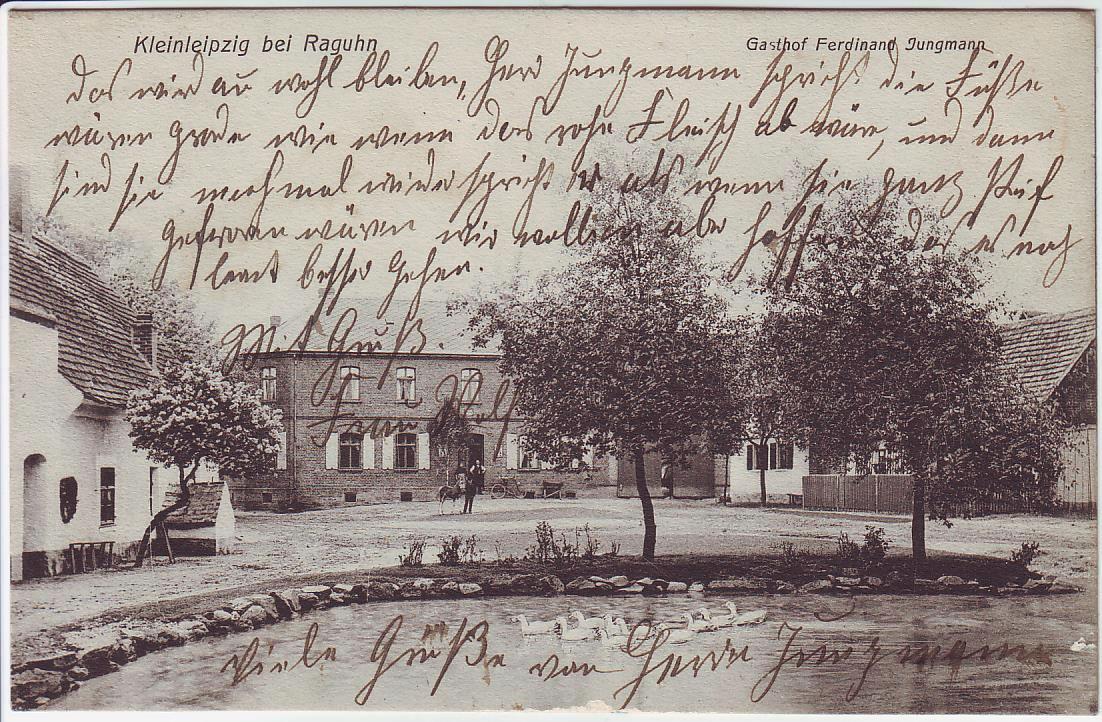 Kleinleipzig bei Raguhn
Gasthof Ferdinand Jungmann
das wird au wohl bleiben, Herr Jungmann spricht die Füße
wären grade wie wenn das rohe Fleisch ab wäre, und dann
sind sie nochmal wieder spricht er als wenn sie ganz
gefroren wären wir wollen aber hoffen das es noch
besser gehen.
Mit Gruß.
Frau
Viele Grüße von Herrn Jungmann